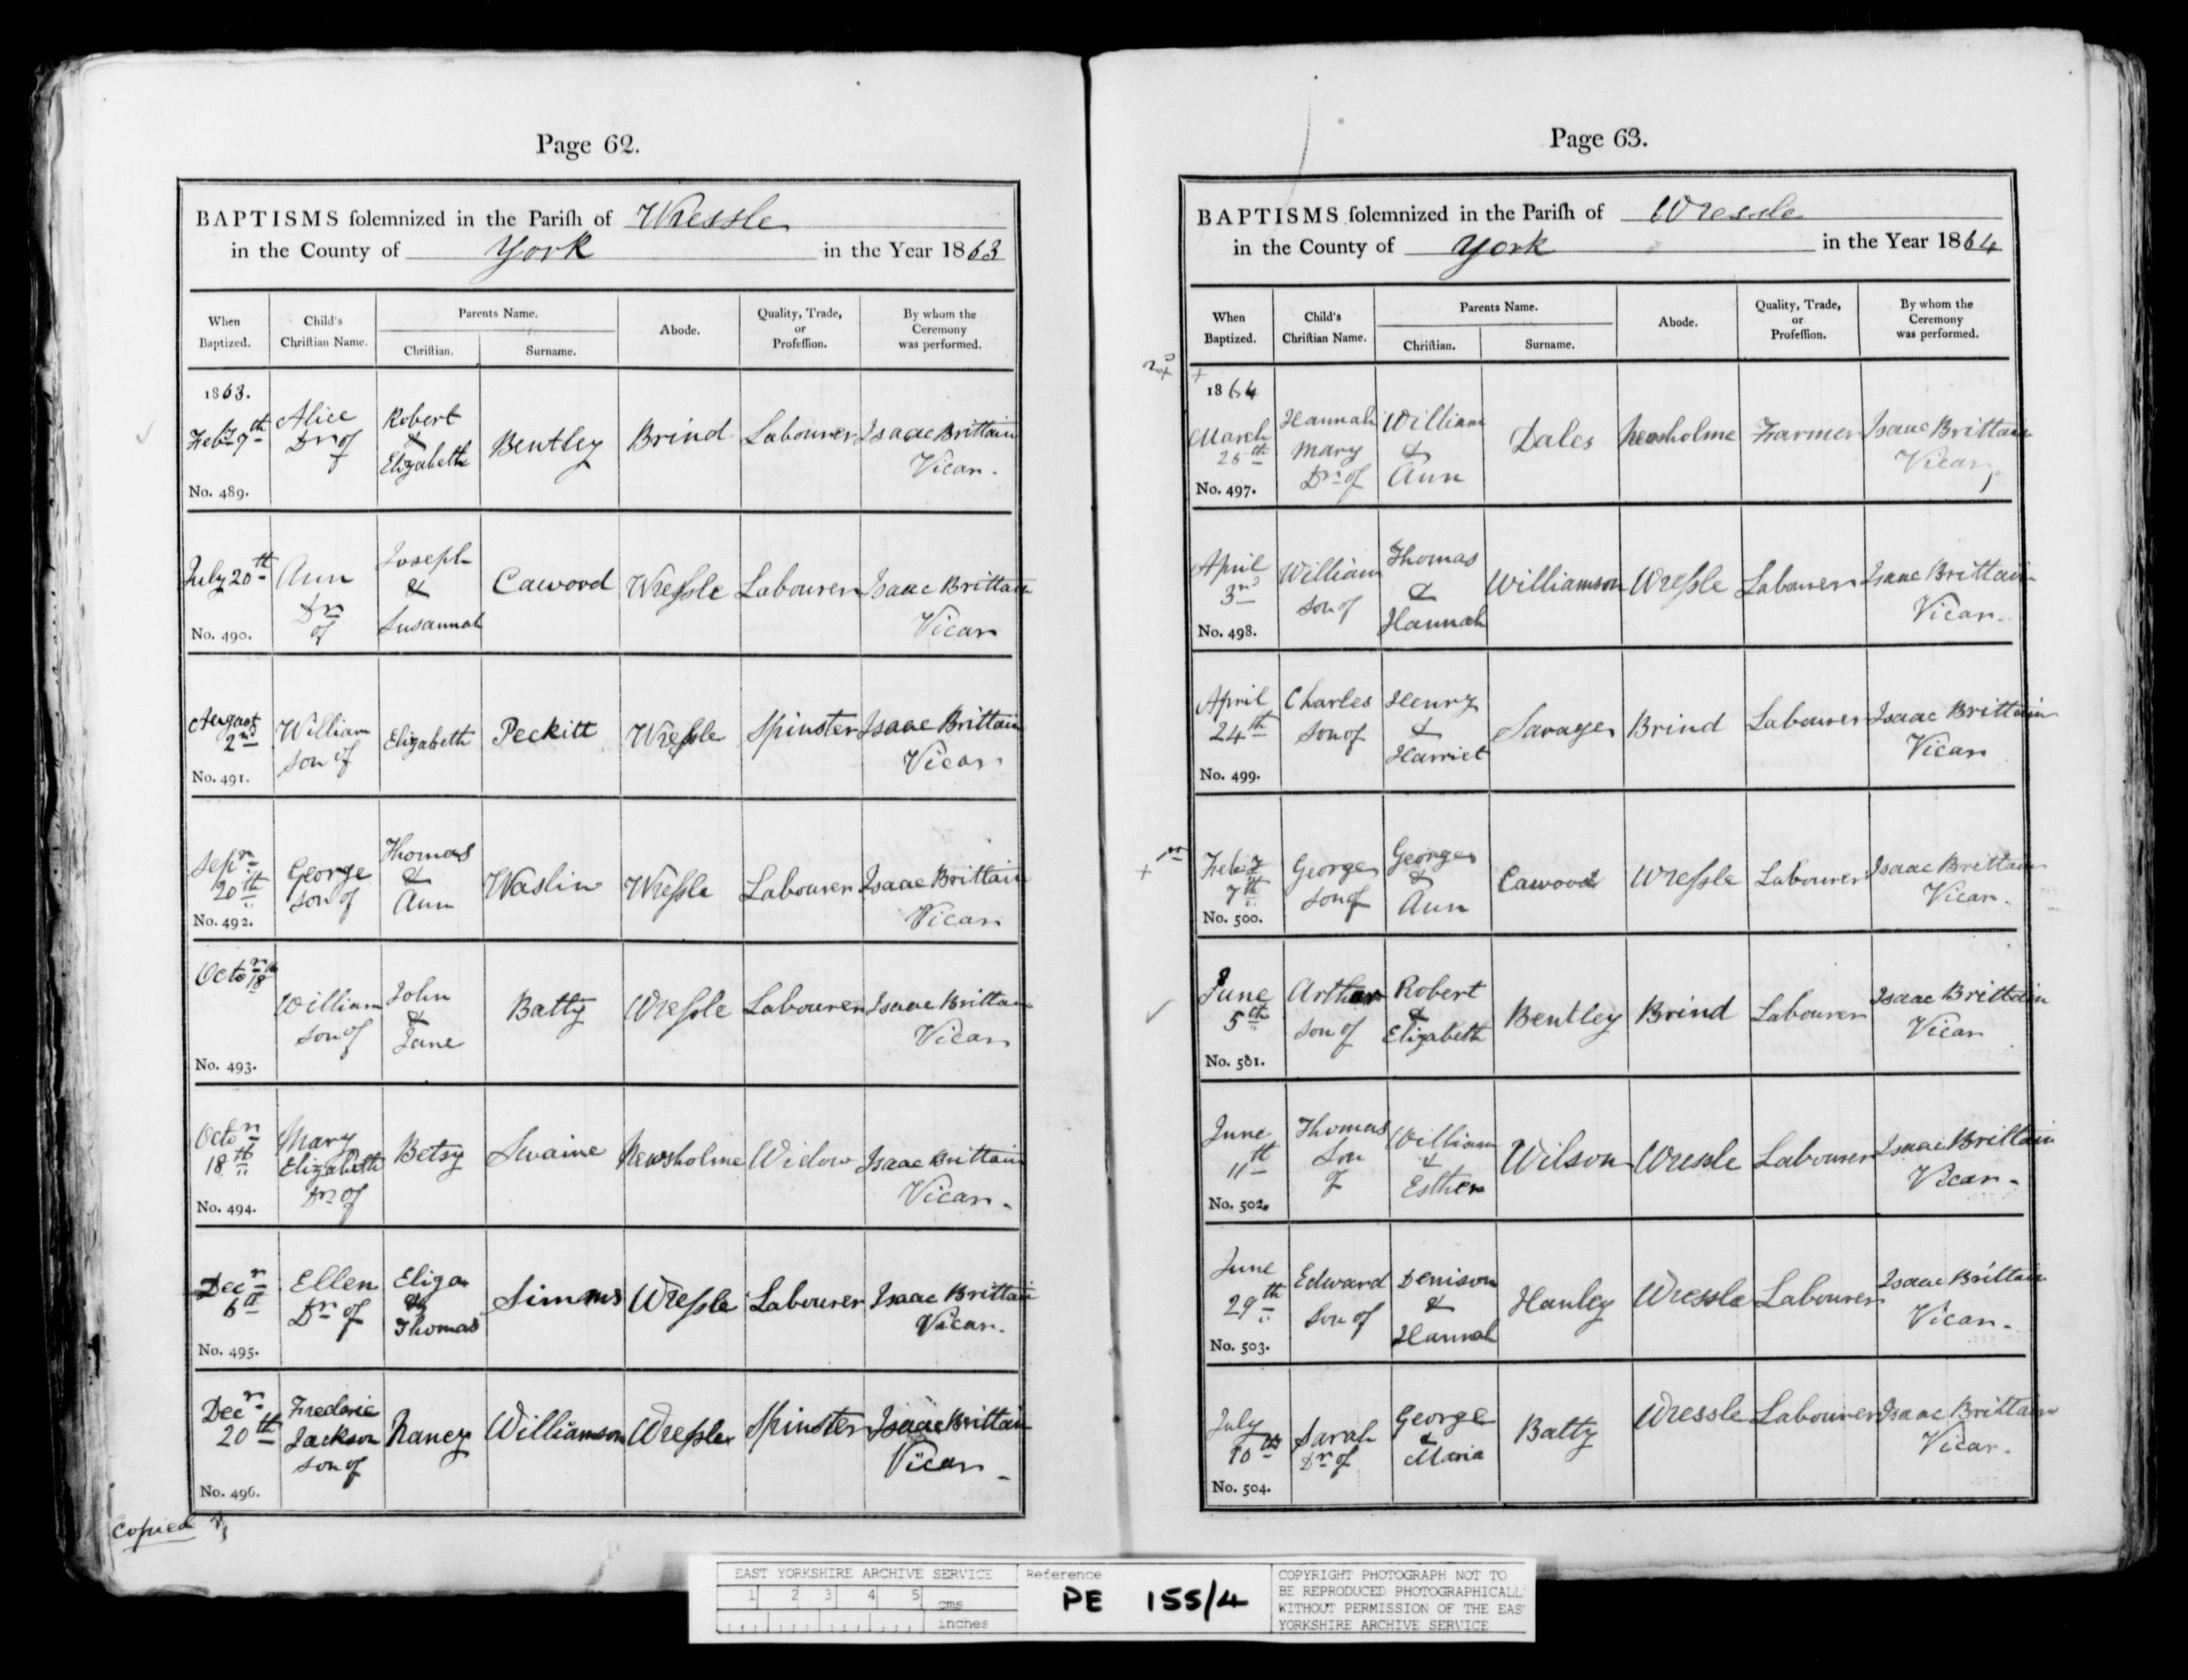 Page 62.
BAPTISMS solemnized in the Parish of Wressle
in the County of York in the Year 1863
When Baptized.
Child's Christian Name.
Parents Name.
Christian.
Surname.
Abode.
Quality, Trade, or Profession.
By whom the Ceremony was performed.
1863.
Feby 7th
No. 489.
Alice Dr of
Robert & Elizabeth
Bentley
Brind
Labourer
Isaac Brittain Vicar.
July 20th
No. 490.
Ann Dr of
Joseph & Susannah
Cawood
Wressle
Labourer
Isaac Brittain Vicar
August 2nd
No. 491.
William son of
Elizabeth
Peckitt
Wressle
Spinster
Isaac Brittain Vicar
Sepr 20th
No. 492.
George son of
Thomas & Ann
Waslin
Wressle
Labourer
Isaac Brittain Vicar
Octor 18
No. 493.
William son of
John & Jane
Batty
Wressle
Labourer
Isaac Brittain Vicar
Octor 18th
No. 494.
Mary Elizabeth Dr of
Betsy
Swaine
Newsholme
Widow
Isaac Brittain Vicar.
Decr 6th
No. 495.
Ellen Dr of
Eliza & Thomas
Simms
Wressle
Labourer
Isaac Brittain Vicar.
Decr 20th
No. 496.
Frederic Jackson son of
Nancy
Williamson
Wressle
Spinster
Isaac Brittain Vicar
Copied
Page 63.
BAPTISMS solemnized in the Parish of Wressle
in the County of York in the Year 1864
When Baptized.
Child's Christian Name.
Parents Name.
Christian.
Surname.
Abode.
Quality, Trade, or Profession.
By whom the Ceremony was performed.
1864
March 25th
No. 497.
Hannah Mary Dr of
William & Ann
Dales
Newsholme
Farmer
Isaac Brittain Vicar
April 3rd
No. 498.
William son of
Thomas & Hannah
Williamson
Wressle
Labourer
Isaac Brittain Vicar.
April 24th
No. 499.
Charles son of
Henry & Harriet
Savage
Brind
Labourer
Isaac Brittain Vicar
Feby 7th
No. 500.
George son of
George & Ann
Cawood
Wressle
Labourer
Isaac Brittain Vicar.
June 5th
No. 501.
Arthur son of
Robert & Elizabeth
Bentley
Brind
Labourer
Isaac Brittain Vicar
June 11th
No. 502.
Thomas Son of
William & Esther
Wilson
Wressle
Labourer
Isaac Brittain Vicar.
June 29th
No. 503.
Edward Son of
Denison & Hannah
Hanley
Wressle
Labourer
Isaac Brittain Vicar.
July 10th
No. 504.
Sarah Dr of
George & Maria
Batty
Wressle
Labourer
Isaac Brittain Vicar.
EAST YORKSHIRE ARCHIVE SERVICE
1 2 3 4 5 cms
inches
Reference
PE 155/4
COPYRIGHT PHOTOGRAPH NOT TO
BE REPRODUCED PHOTOGRAPHICALL
WITHOUT PERMISSION OF THE EAS
YORKSHIRE ARCHIVE SERVICE